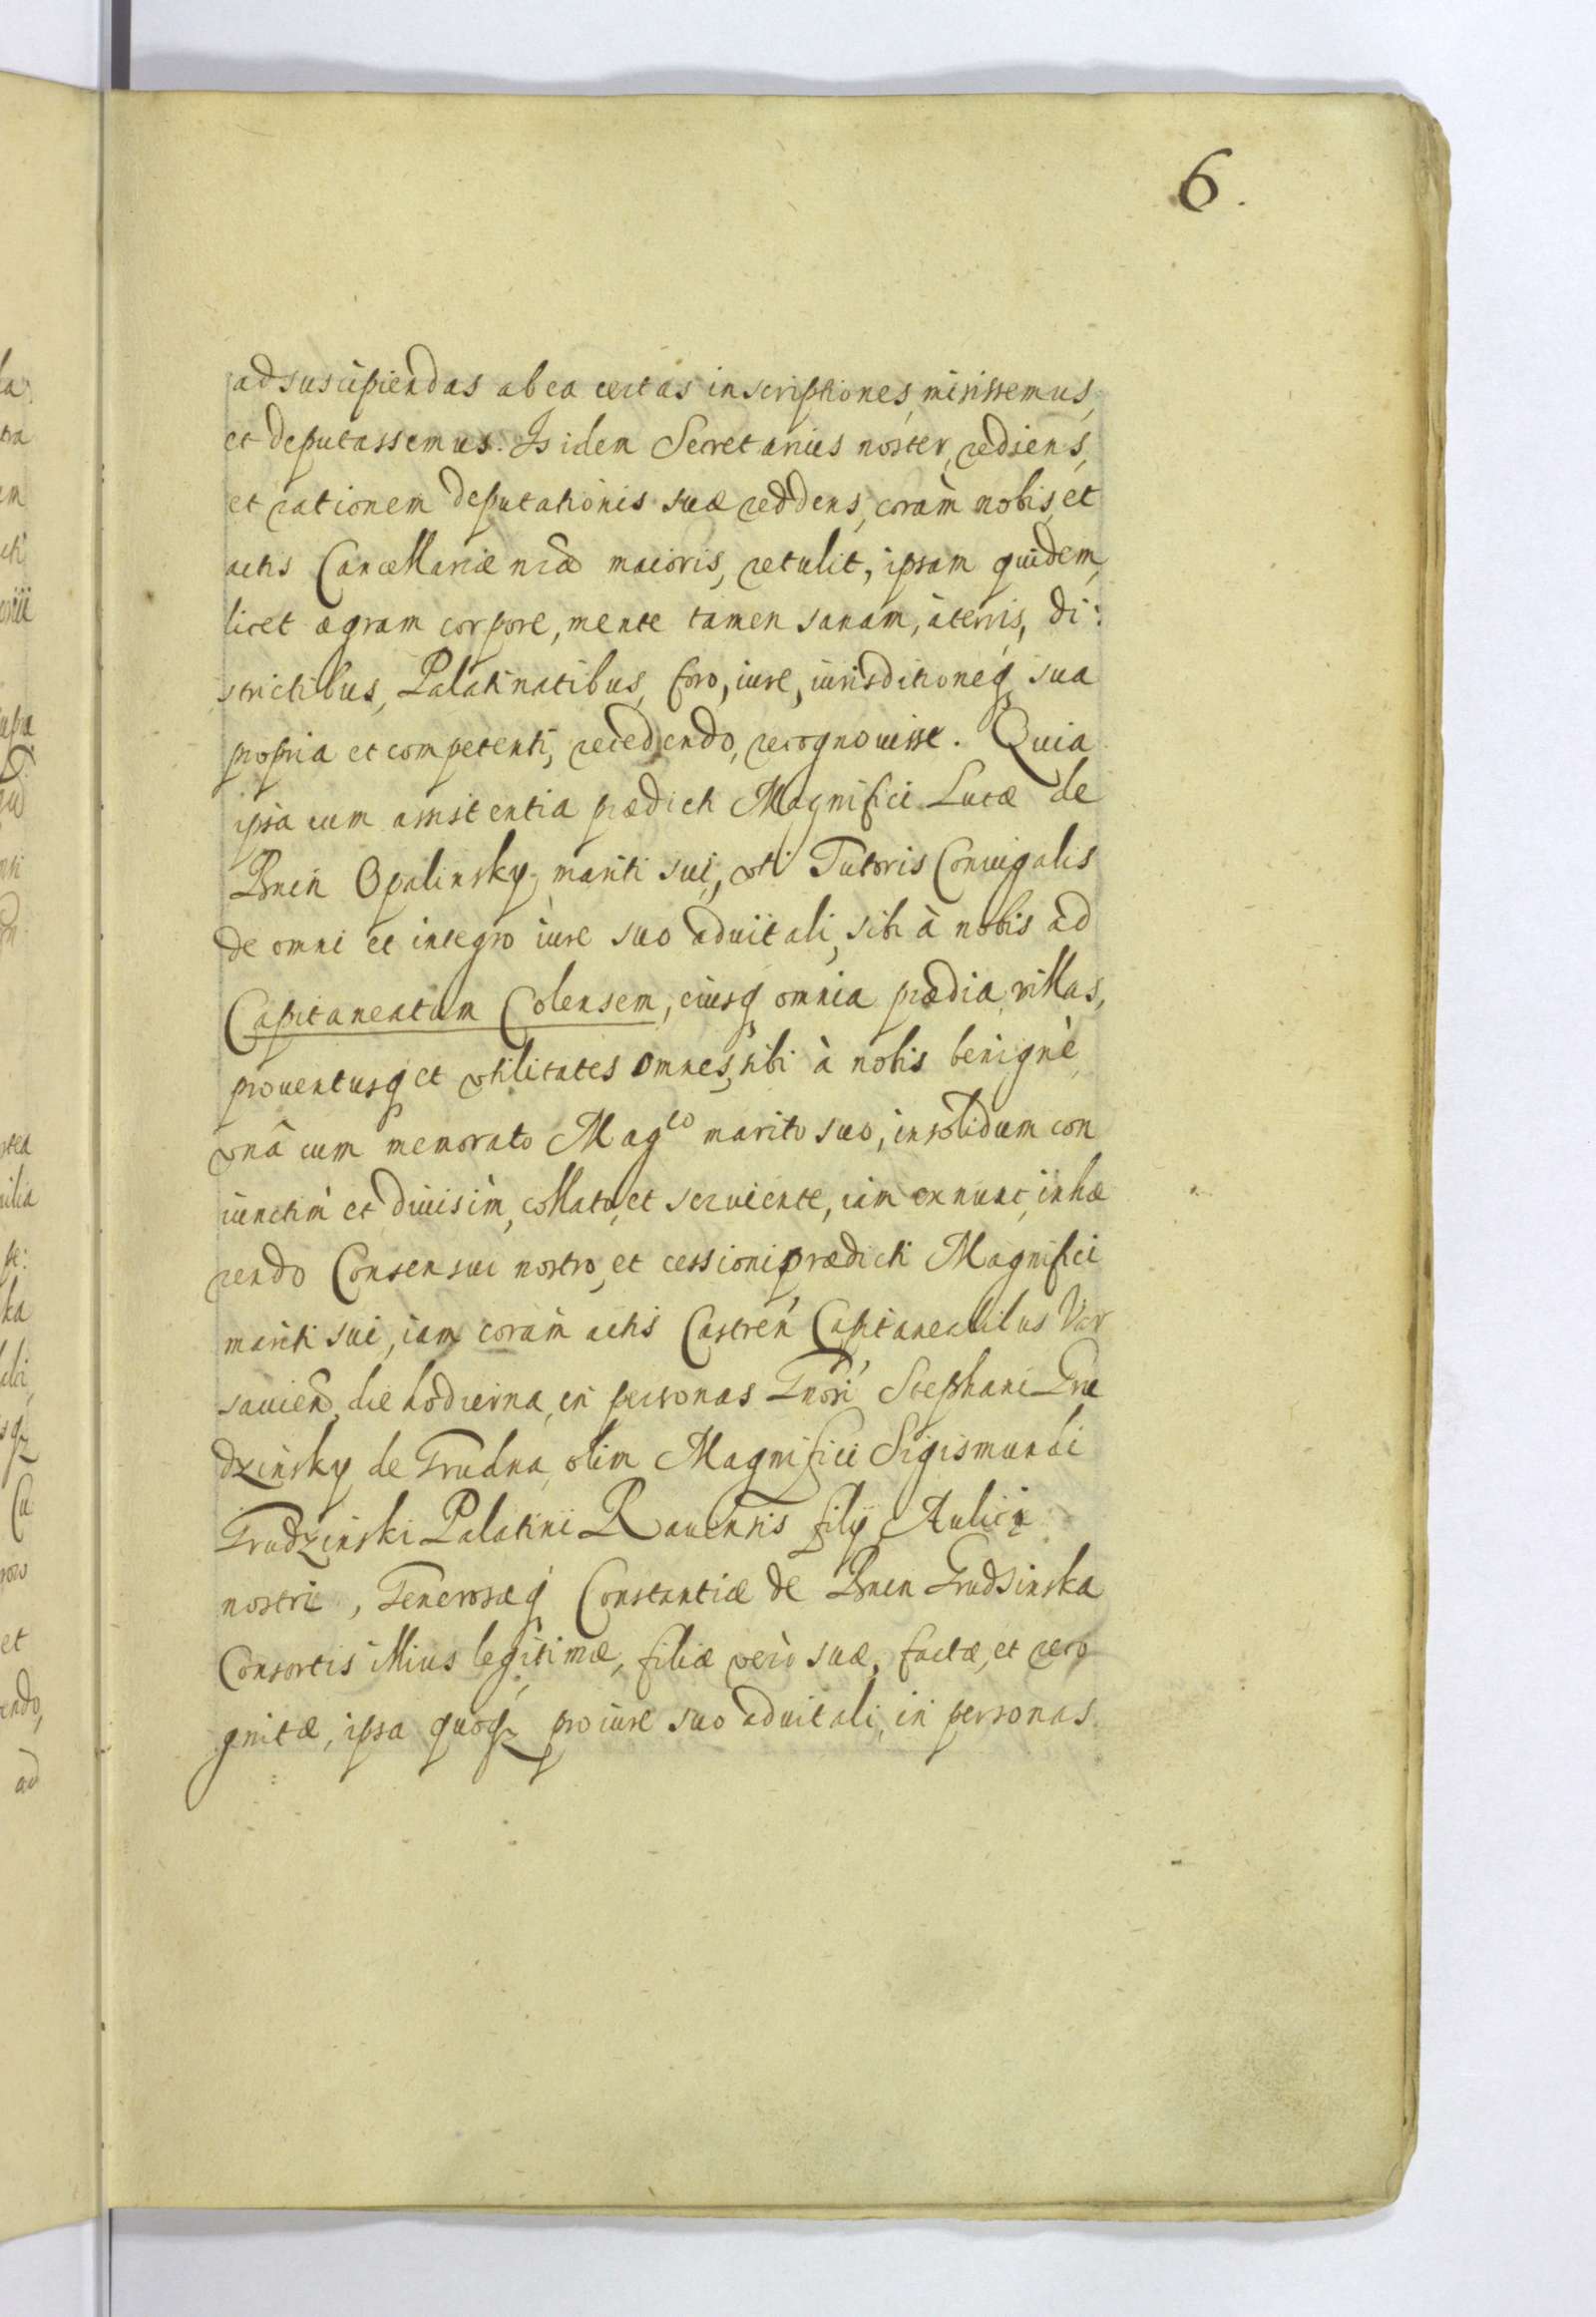 6.
ad suscipiendas ab ea certas inscriptiones, misissemus,
et deputassemus. Is idem Secretarius noster, rediens,
et rationem deputationis suæ reddens, coràm nobis, et
actis Cancellariæ nræ maioris, retulit, ipsam quidem,
licet ægram corpore, mente tamen sanam, à terris, di:
strictibus, Palatinatibus, foro, iure, iurisditioneq sua
propria et competenti, recedendo, recognouisse. Quia
ipsa cum assistentia prædicti Magnifici Lucæ de
Bnin Opalinsky, mariti sui, vti Tutoris Coniugalis
de omni et integro iure suo aduitali, sibi à nobis ad
Capitaneatum Colensem, eiusq omnia prædia, villas,
prouentusq et vtilitates omnes, sibi à nobis benignè,
vnâ cum memorato Magco marito suo, in solidum con
iunctim et diuisìm, collato, et seruiente, iam ex nunc, inhæ
rendo Consensui nostro, et cessioni prædicti Magnifici
mariti sui, iam coràm actis Castren Capitanealibus Var
sauien, die hodierna, in personas Gnosi Stephani Gru
dzinsky de Grudna, olim Magnifici Sigismundi
Grudzinski Palatini Rauensis filij Aulici
nostri, Generosæq Constantiæ de Bnin Grudsinska
Consortis illius legitimæ, filiæ verò suæ, factæ, et reco
gnitæ, ipsa quoq pro iure suo aduitali, in personas